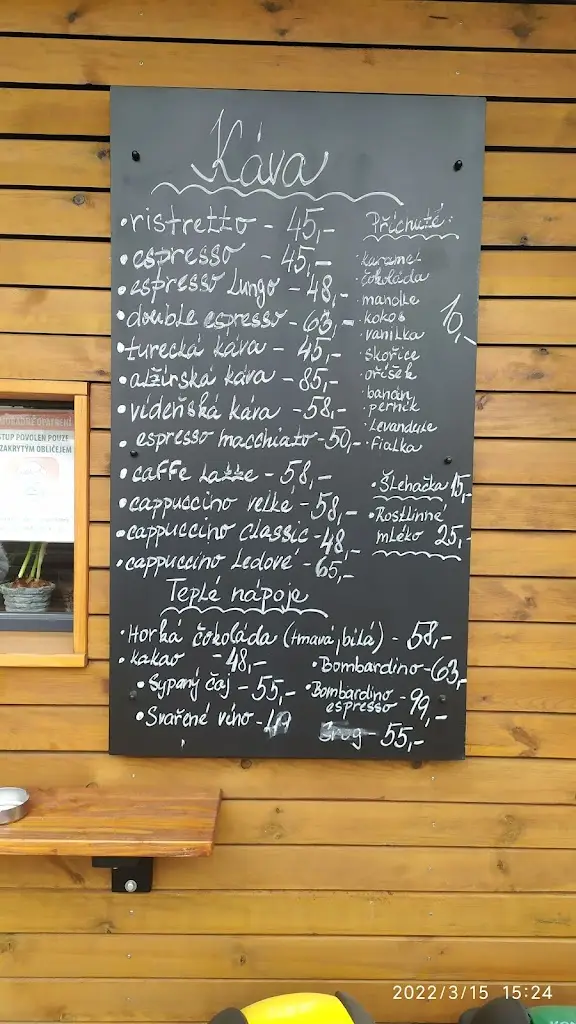 Káva
•ristretto - 45,-
•espresso - 45,-
•espresso Lungo - 48,-
•double espresso - 63,-
•turecká káva - 45,-
•alžírská káva - 85,-
•vídeňská káva - 58,-
•espresso macchiato - 50,-
•caffe Latte - 58,-
•cappuccino velké - 58,-
•cappuccino classic - 48,-
•cappuccino Ledové - 65,-
Příchutě:
•karamel
•čokoláda
•mandle
•kokos
•vanilka
•skořice
•oříšek
•banán
•perník
•Levandule
•fialka
10,-
•Šlehačka 15,-
•Rostlinné
mléko 25,-
Teplé nápoje
•Horká čokoláda (tmavá, bílá) - 58,-
•kakao - 48,-
•Sypaný čaj - 55,-
•Svařené víno -
•Bombardino - 63,-
•Bombardino
espresso - 99,-
Grog - 55,-
STUP POVOLEN POUZE
ZAKRYTÝM OBLIČEJEM
2022/3/15 15:24